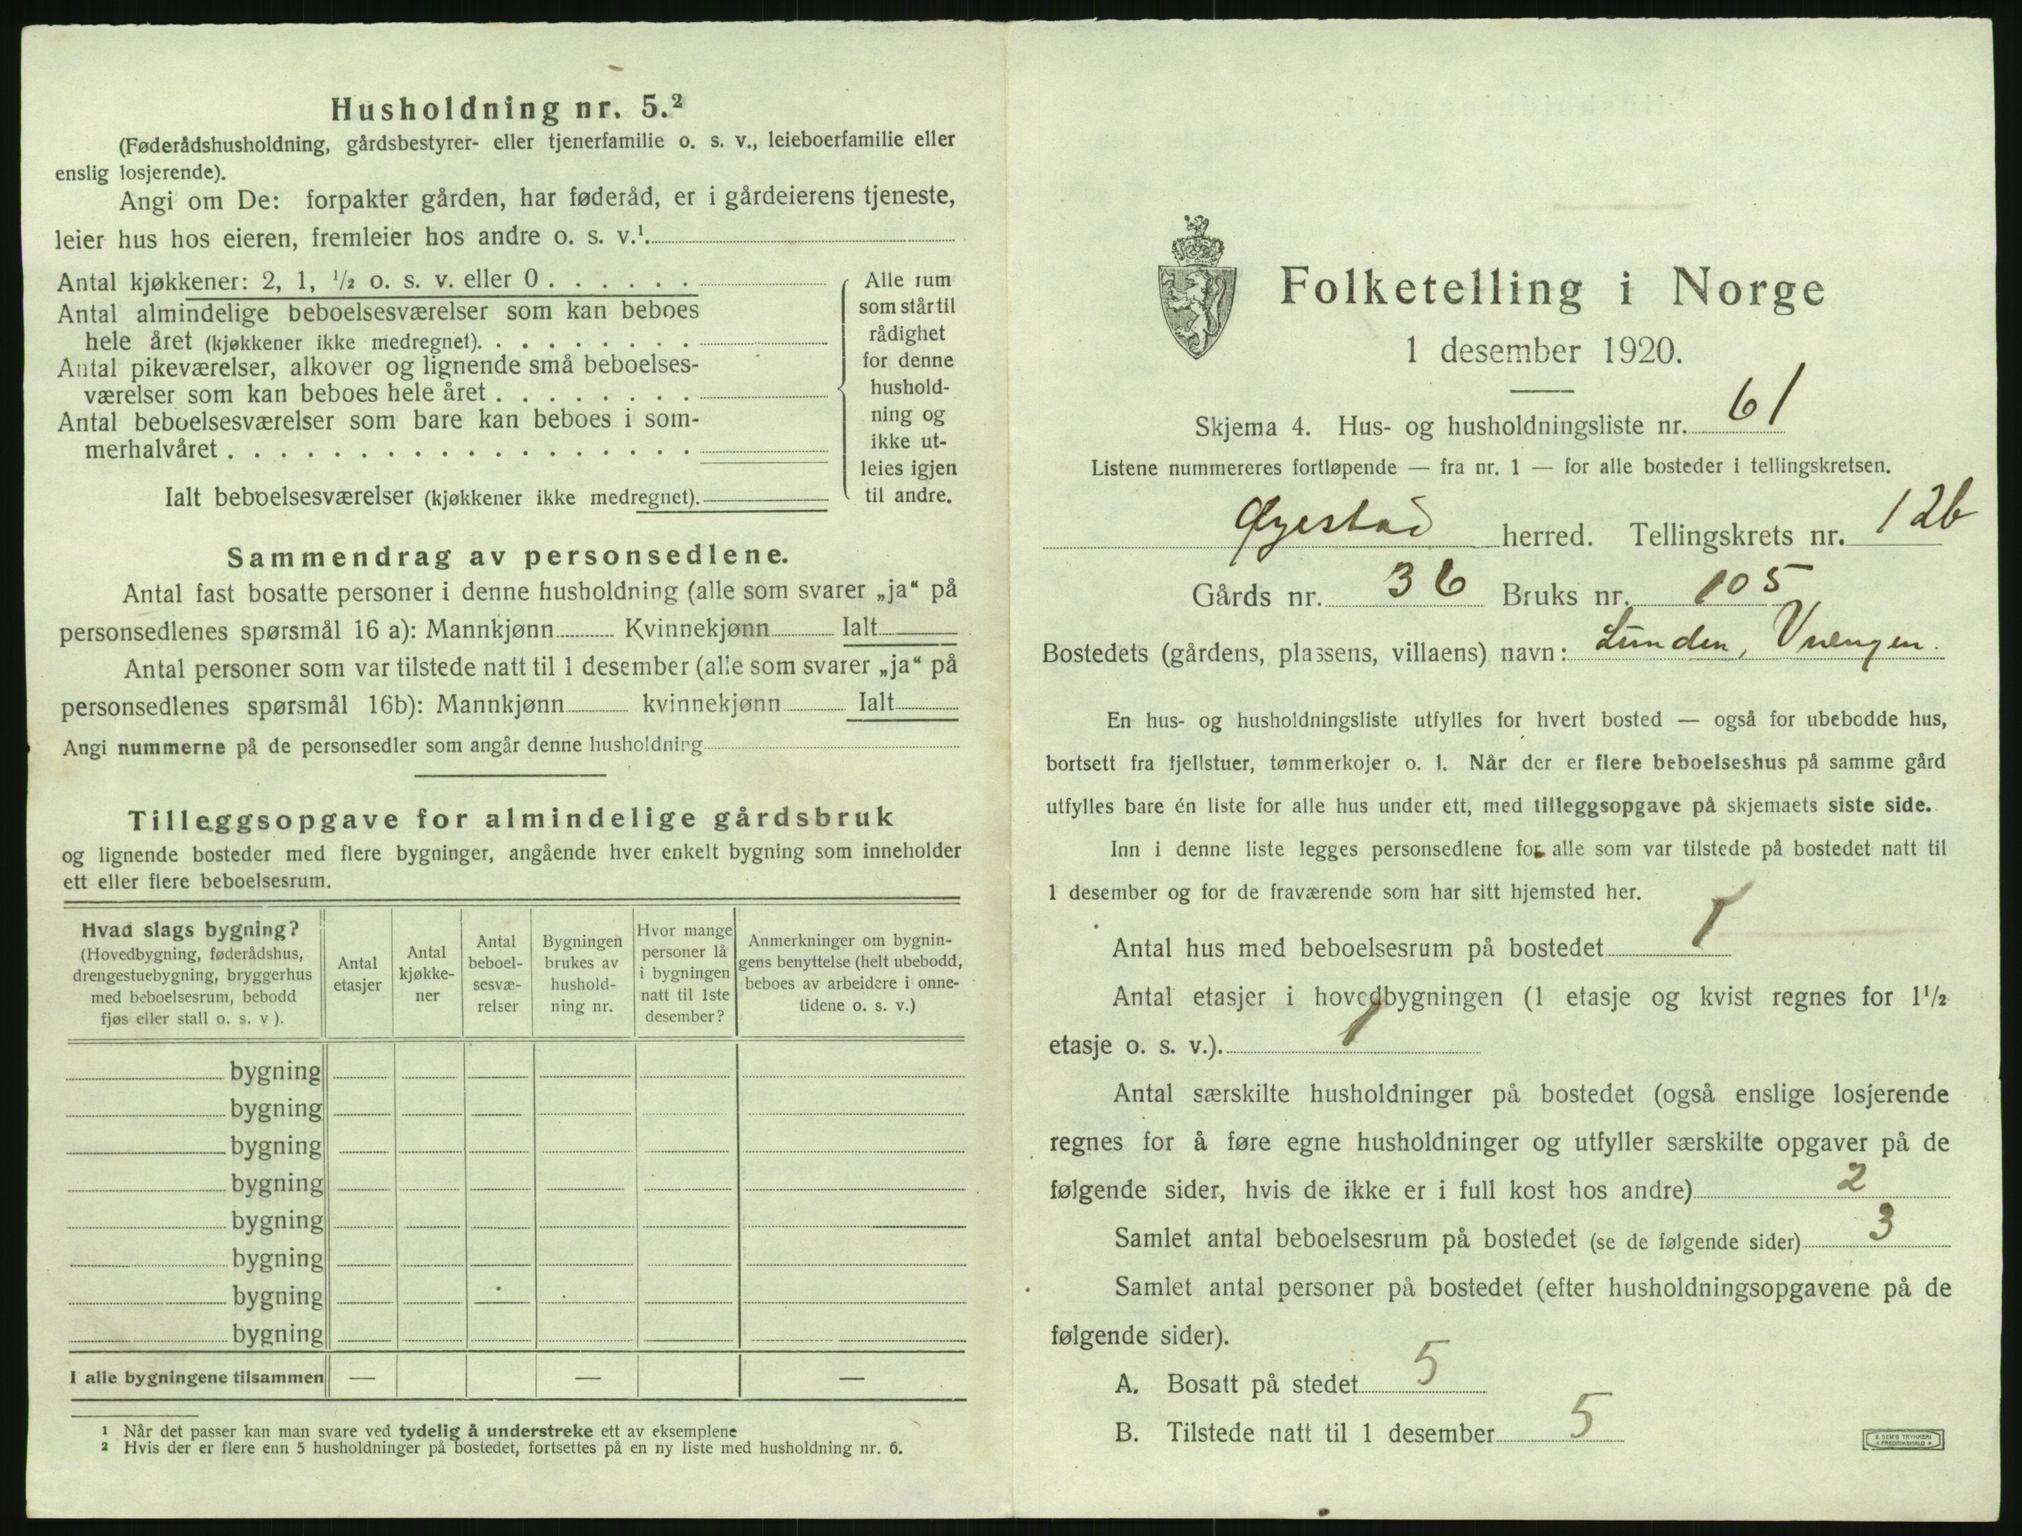 Husholdning nr. 5.²
(Føderådshusholdning, gårdsbestyrer- eller tjenerfamilie o. s. v., leieboerfamilie eller
enslig losjerende).
Angi om De: forpakter gården, har føderåd, er i gårdeierens tjeneste,
leier hus hos eieren, fremleier hos andre o. s. v.¹
Antal kjøkkener: 2, 1, ½ o. s. v. eller 0
Antal almindelige beboelsesværelser som kan beboes
hele året (kjøkkener ikke medregnet).
Antal pikeværelser, alkover og lignende små beboelses-
værelser som kan beboes hele året
Antal beboelsesværelser som bare kan beboes i som-
merhalvåret
Ialt beboelsesværelser (kjøkkener ikke medregnet).
Alle rum
som står til
rådighet
for denne
hushold-
ning og
ikke ut-
leies igjen
til andre.
Sammendrag av personsedlene.
Antal fast bosatte personer i denne husholdning (alle som svarer „ja“ på
personsedlenes spørsmål 16 a): Mannkjønn Kvinnekjønn Ialt
Antal personer som var tilstede natt til 1 desember (alle som svarer „ja“ på
personsedlenes spørsmål 16b): Mannkjønn kvinnekjønn Ialt
Angi nummerne på de personsedler som angår denne husholdning
Tilleggsopgave for almindelige gårdsbruk
og lignende bosteder med flere bygninger, angående hver enkelt bygning som inneholder
ett eller flere beboelsesrum.
Hvad slags bygning?
(Hovedbygning, føderådshus,
drengestuebygning, bryggerhus
med beboelsesrum, bebodd
fjøs eller stall o. s. v ).
Antal
etasjer
Antal
kjøkke-
ner
Antal
beboel-
sesvæ-
relser
Bygningen
brukes av
hushold-
ning nr.
Hvor mange
personer lå
i bygningen
natt til 1ste
desember?
Anmerkninger om bygnin-
gens benyttelse (helt ubebodd,
beboes av arbeidere i onne-
tidene o. s. v.)
bygning
bygning
bygning
bygning
bygning
bygning
bygning
bygning
I alle bygningene tilsammen — — —
¹ Når det passer kan man svare ved tydelig å understreke ett av eksemplene
² Hvis der er flere enn 5 husholdninger på bostedet, fortsettes på en ny liste med husholdning nr. 6.
Folketelling i Norge
1 desember 1920.
Skjema 4. Hus- og husholdningsliste nr. 61
Listene nummereres fortløpende — fra nr. 1 — for alle bosteder i tellingskretsen.
Øyestad herred. Tellingskrets nr. 12b
Gårds nr. 36 Bruks nr. 105
Bostedets (gårdens, plassens, villaens) navn: Lunden, Vrengen.
En hus- og husholdningsliste utfylles for hvert bosted — også for ubebodde hus,
bortsett fra fjellstuer, tømmerkojer o. l. Når der er flere beboelseshus på samme gård
utfylles bare én liste for alle hus under ett, med tilleggsopgave på skjemaets siste side.
Inn i denne liste legges personsedlene for alle som var tilstede på bostedet natt til
1 desember og for de fraværende som har sitt hjemsted her.
Antal hus med beboelsesrum på bostedet 1
Antal etasjer i hovedbygningen (1 etasje og kvist regnes for 1½
etasje o. s. v.). 1
Antal særskilte husholdninger på bostedet (også enslige losjerende
regnes for å føre egne husholdninger og utfyller særskilte opgaver på de
følgende sider, hvis de ikke er i full kost hos andre) 2
Samlet antal beboelsesrum på bostedet (se de følgende sider) 3
Samlet antal personer på bostedet (efter husholdningsopgavene på de
følgende sider).
A. Bosatt på stedet 5
B. Tilstede natt til 1 desember 5
E. SEM'S TRYKKERI
FREDRIKSHALD